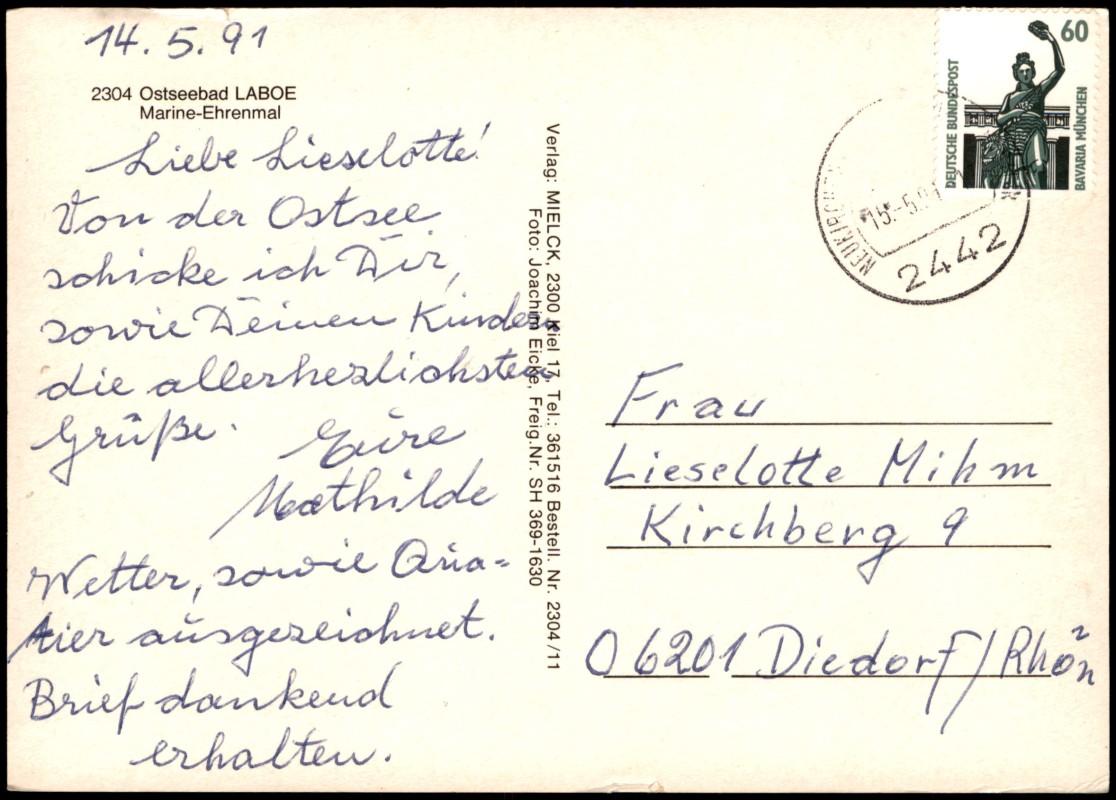 14.5.91
2304 Ostseebad LABOE
Marine-Ehrenmal
Liebe Lieselotte!
Von der Ostsee
schicke ich Dir,
sowie Deinen Kindern
die allerherzlichsten
Grüße. Eure
Mathilde
Wetter, sowie Quar-
tier ausgezeichnet.
Brief dankend
erhalten.
Verlag: MIELCK, 2300 Kiel 17, Tel.: 361516 Bestell. Nr. 2304/11
Foto: Joachim Eicke, Freig.Nr. SH 369-1630
60
DEUTSCHE BUNDESPOST
BAVARIA MÜNCHEN
15.-5.91
2442
Frau
Lieselotte Mihm
Kirchberg 9
O 6201 Diedorf/Rhön